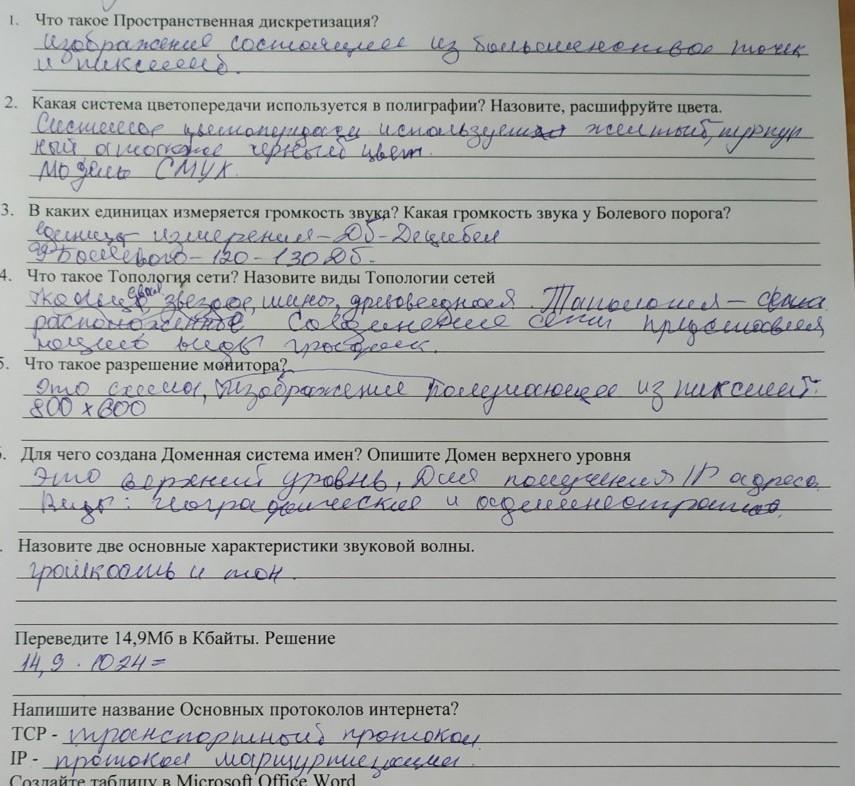 1. Что такое Пространственная дискретизация?
изображение состоящее из большенства точек
и пикселей.
2. Какая система цветопередачи используется в полиграфии? Назовите, расшифруйте цвета.
Система цветопередачи используется желтый, пурпур
ный а также черный цвет.
Модель СМУК.
3. В каких единицах измеряется громкость звука? Какая громкость звука у Болевого порога?
единица измерения – Дб – Децибел
Болевого – 120 – 130 Дб.
4. Что такое Топология сети? Назовите виды Топологии сетей
звезда, шина, древовидная. Тапология –
расположение Соединение сети
виды
5. Что такое разрешение монитора?
Это схема, Изображение получающее из пикселей.
800 х 600
. Для чего создана Доменная система имен? Опишите Домен верхнего уровня
Это верхний уровнь, Для получения IP адреса.
Виды: географические и
. Назовите две основные характеристики звуковой волны.
громкость и тон.
Переведите 14,9Мб в Кбайты. Решение
14,9 · 1024 =
Напишите название Основных протоколов интернета?
TCP - транспортный протокол
IP - протокол маршуртизации.
Создайте таблицу в Microsoft Office Word